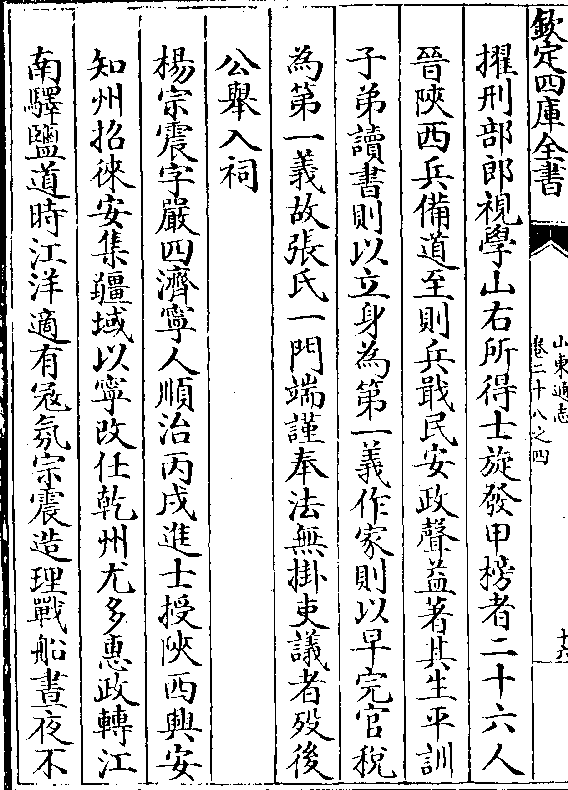 欽定四庫全書
山東通志
卷二十八之四
十六
擢刑部郎視學山右所得士旋發甲榜者二十六人
晉陜西兵備道至則兵戢民安政聲益著其生平訓
子弟讀書則以立身為第一義作家則以早完官稅
為第一義故張氏一門端謹奉法無掛吏議者歿後
公舉入祠
楊宗震字嚴四濟寧人順治丙戌進士授陜西興安
知州招徠安集疆域以寧改任乾州尤多惠政轉江
南驛鹽道時江洋適有冦氛宗震造理戰船晝夜不